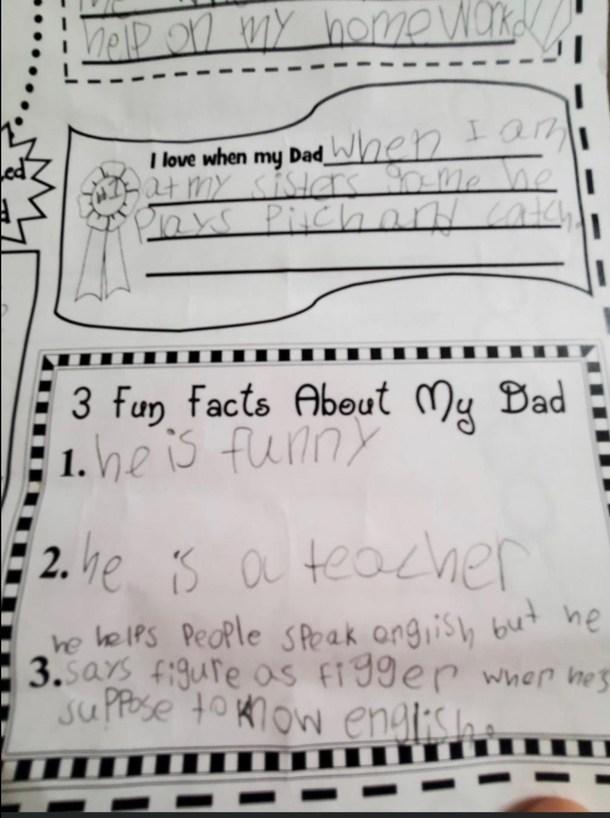 help on my homework
ed
I love when my Dad when I am
#1 at my sisters game he
Plays Pitch and catch.
3 Fun Facts About My Dad
1. he is funny
2. he is a teacher
he helps People speak angiish but he
3. says figure as figger when hes
suppose to know english.